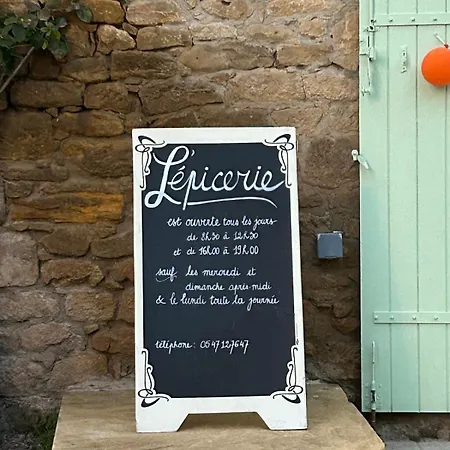 L'épicerie
est ouverte tous les jours
de 8h30 à 12h30
et de 16h00 à 19h00
sauf les mercredi et
dimanche après-midi
& le lundi toute la journée
téléphone : 0547127647